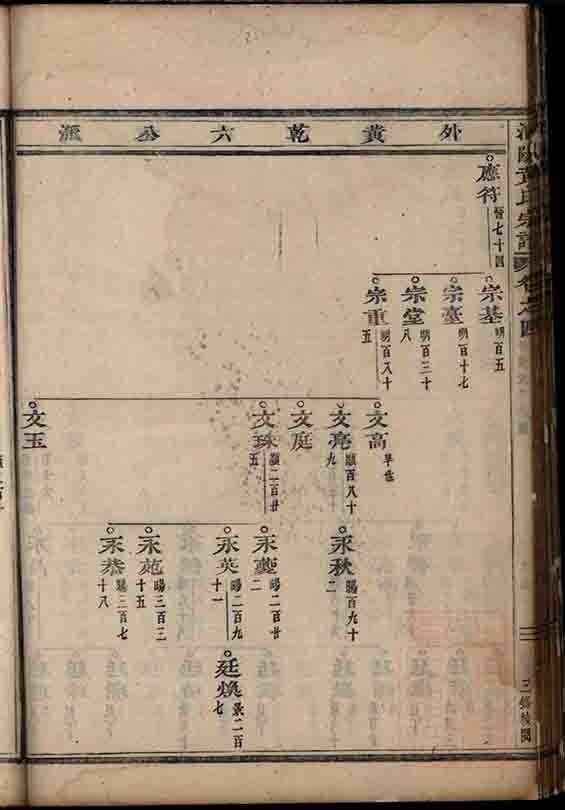 外黄乾六公派
應符
晉七十四
宗基
明百五
宗臺
明百十七
宗堂
明百三十八
宗重
明百八十五
文高
早世
文亮
顯百八十九
文庭
文珠
顯二百廿五
文玉
永秋
賜百九十二
永夔
賜二百廿二
永英
賜二百九十一
永苑
賜三百三十五
永恭
賜三百七十八
廷煥
景二百七
黄氏宗譜
卷之四